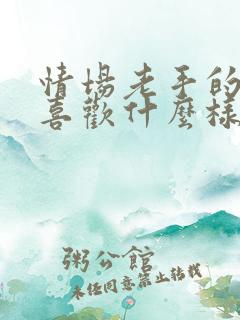 情場老手的
喜歡什麼樣
粥公館
未經同意禁止轉載